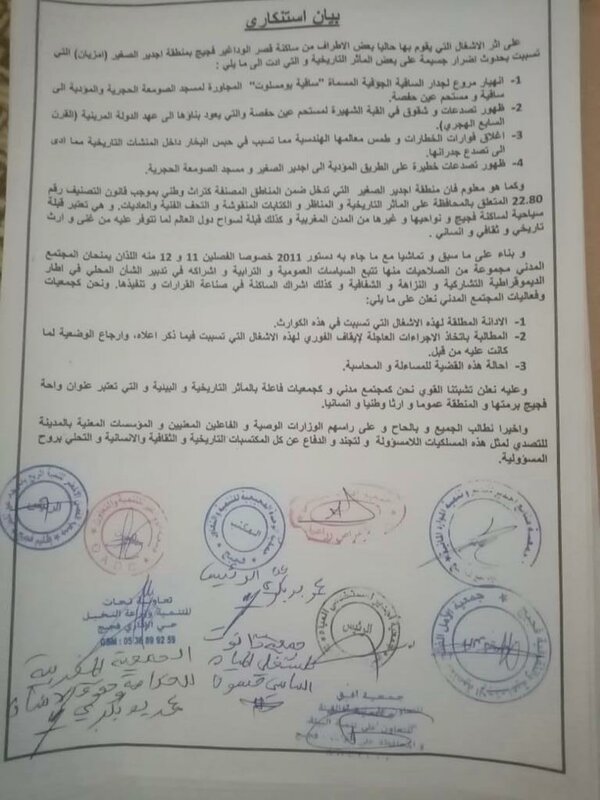 بيان استنكاري
على اثر الاشغال التي يقوم بها حاليا بعض الاطراف من ساكنة قصر الوداغير فجيج بمنطقة اجدير الصغير (امزيان) التي
تسببت بحدوث اضرار جسيمة على بعض المآثر التاريخية و التي ادت الى ما يلي :
1- انهيار مروع لجدار الساقية الجوفية المسماة "ساقية بومسلوت" المجاورة لمسجد الصومعة الحجرية والمؤدية الى
ساقية و مستحم عين حفصة.
2- ظهور تصدعات و شقوق في القبة الشهيرة لمستحم عين حفصة والتي يعود بناؤها الى عهد الدولة المرينية (القرن
السابع الهجري).
3- إغلاق فوارات الخطارات و طمس معالمها الهندسية مما تسبب في حبس البخار داخل المنشآت التاريخية مما ادى
الى تصدع جدرانها.
4- ظهور تصدعات خطيرة على الطريق المؤدية الى اجدير الصغير و مسجد الصومعة الحجرية.
وكما هو معلوم فان منطقة اجدير الصغير التي تدخل ضمن المناطق المصنفة كتراث وطني بموجب قانون التصنيف رقم
22.80 المتعلق بالمحافظة على المآثر التاريخية و المناظر و الكتابات المنقوشة و التحف الفنية والعاديات. و هي تعتبر قبلة
سياحية لساكنة فجيج و نواحيها و غيرها من المدن المغربية و كذلك قبلة لسواح دول العالم لما تتوفر عليه من غنى و ارث
تاريخي و ثقافي و انساني .
و بناء على ما سبق و تماشيا مع ما جاء به دستور 2011 خصوصا الفصلين 11 و 12 منه اللذان يمنحان المجتمع
المدني مجموعة من الصلاحيات منها تتبع السياسات العمومية و الترابية و اشراكه في تدبير الشأن المحلي في اطار
الديموقراطية التشاركية و النزاهة و الشفافية و كذلك اشراك الساكنة في صناعة القرارات و تنفيذها. ونحن كجمعيات
وفعاليات المجتمع المدني نعلن على ما يلي:
1- الادانة المطلقة لهذه الاشغال التي تسببت في هذه الكوارث.
2- المطالبة باتخاذ الاجراءات العاجلة لإيقاف الفوري لهذه الاشغال التي تسببت فيما ذكر اعلاه، وارجاع الوضعية لما
كانت عليه من قبل.
3- احالة هذه القضية للمساءلة و المحاسبة.
وعليه نعلن تشبتنا القوي نحن كمجتمع مدني و كجمعيات فاعلة بالمآثر التاريخية و البيئية و التي تعتبر عنوان واحة
فجيج برمتها و المنطقة عموما و ارثا وطنيا و انسانيا.
واخيرا نطالب الجميع و بالحاح و على راسهم الوزارات الوصية و الفاعلين المعنيين و المؤسسات المعنية بالمدينة
للتصدي لمثل هذه المسلكيات اللامسؤولة و لتجند و الدفاع عن كل المكتسبات التاريخية و الثقافية والانسانية و التحلي بروح
المسؤولية.
الرئيس
المكتب
الرئيس
تعاونية تحات
للتنمية وزراعة النخيل
فجيج
GSM : 05 36 89 92 59
الجمعية المغربية
جمعية
جمعية افق